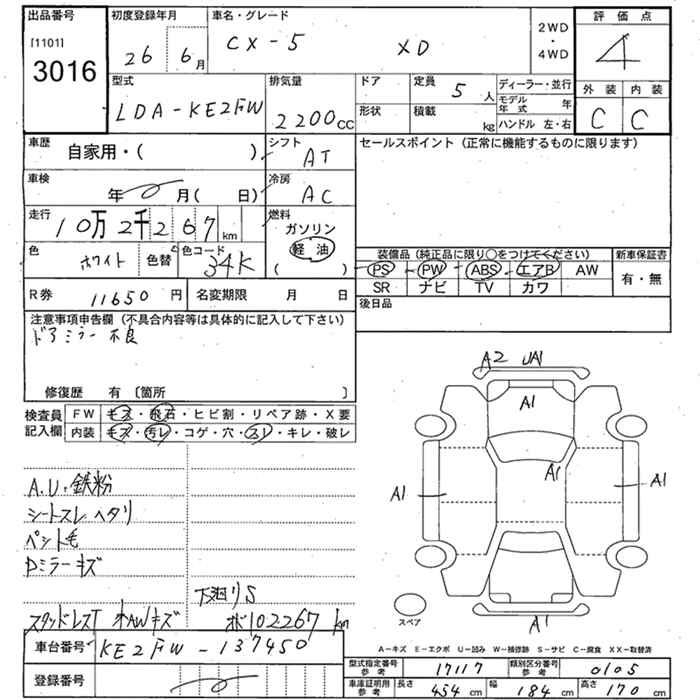 出品番号
[1101]
3016
初度登録年月
26 6月
車名・グレード
CX-5 XD
2WD
・
4WD
評価点
4
外装 内装
C C
型式
LDA-KE2FW
排気量
2200cc
ドア
形状
定員 5人
積載 kg
ディーラー・並行
モデル年式 年
ハンドル 左・右
車歴
自家用・( )
シフト
AT
セールスポイント(正常に機能するものに限ります)
車検
年 月( 日)
冷房
AC
走行
10万2千267km
燃料
ガソリン
軽油
( )
色
ホワイト
色替
色コード
34K
装備品(純正品に限り○をつけてください)
新車保証書
PS PW ABS エアB AW
SR ナビ TV カワ
有・無
R券 11650円
名変期限 月 日
後日品
注意事項申告欄(不具合内容等は具体的に記入して下さい)
ドアミラー不良
修復歴 有〔箇所 〕
検査員記入欄
FW キズ・飛石・ヒビ割・リペア跡・X要
内装 キズ・汚レ・コゲ・穴・スレ・キレ・破レ
A.U.鉄粉
シートスレ ヘタリ
ペット毛
Dミラーキズ
下廻りS
スタッドレスT
AWキズ
102267km
A2 UA1
A1
A1
A1
A1
A1
スペア
A−キズ E−エクボ U−凹み W−補修跡 S−サビ C−腐食 XX−取替済
車台番号 KE2FW-137450
登録番号
型式指定番号 参考 17117
類別区分番号 参考 0105
車庫証明用 参考
長さ 454cm
幅 184cm
高さ 170cm